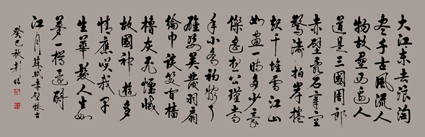 大江东去浪淘
尽千古风流人
物故垒西边人
道是三国周郎
赤壁乱石穿空
惊涛拍岸卷
起千堆雪江山
如画一时多少豪
傑遥想公瑾当
年小乔初嫁了
雄姿英发羽扇
纶巾谈笑间樯
橹灰飞烟灭
故国神游多
情应笑我早
生华发人生如
梦一樽还酹
江月 苏轼赤壁怀古
癸巳秋